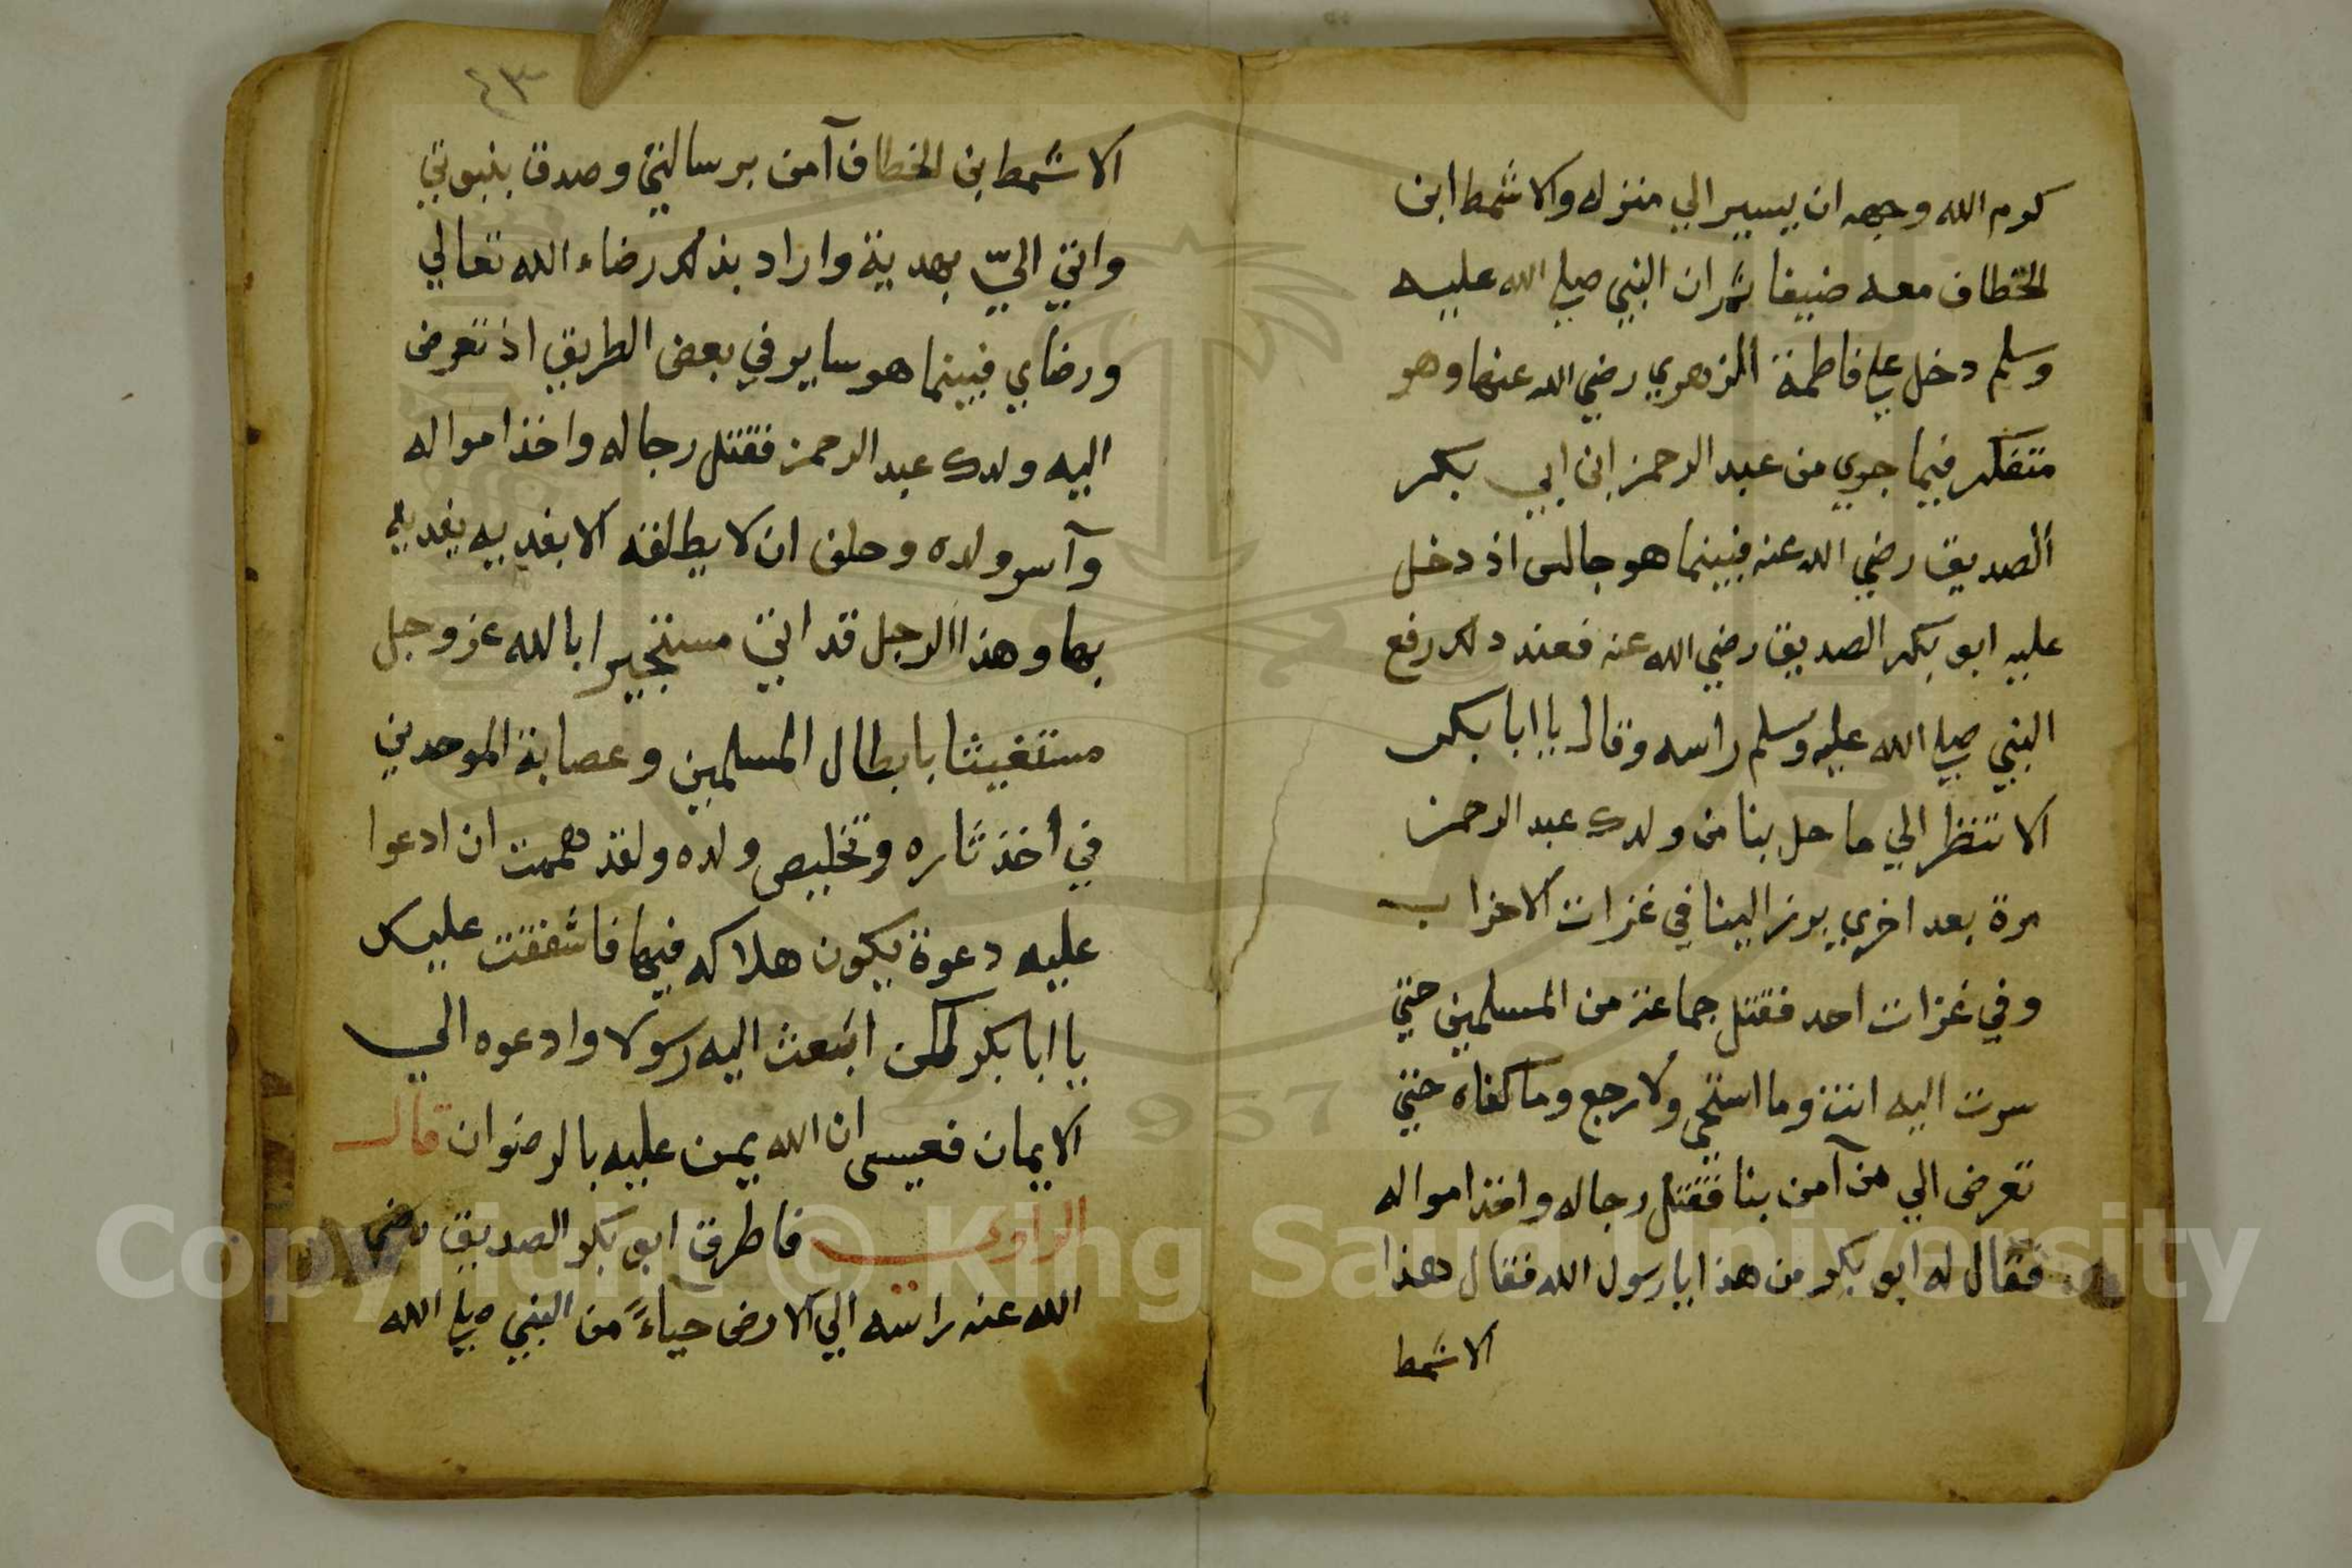 كرم الله وجهه ان يسير الي منزله والاشمط ابن
الخطاف معه ضيفا ثم ان النبي صلي الله عليه
وسلم دخل علي فاطمة الزهري رضي الله عنها وهو
متفكر فيما جري من عبد الرحمن ابن ابي بكر
الصديق رضي الله عنه فبينما هو جالس اذ دخل
عليه ابو بكر الصديق رضي الله عنه فعند دلك رفع
النبي صلي الله عليه وسلم راسه وقال يا ابا بكر
الا تنظر الي ما حل بنا من ولدك عبد الرحمن
مرة بعد اخري يرز الينا في غزات الاحزاب
وفي غزات احد فقتل جماعة من المسلمين حتي
سرت اليه انت وما استحي ولا رجع وما كفاه حتي
تعرض الي من آمن بنا فقتل رجاله واخذ امواله
فقال له ابو بكر من هذا يا رسول الله فقال هذا
الاشمط
٤٣
الاشمط بن الخطاف آمن برسالتي وصدق بنبوتي
واتي اليّ بهدية واراد بذلك رضاء الله تعالي
ورضاي فبينما هو ساير في بعض الطريق اذ تعرض
اليه ولدك عبد الرحمن فقتل رجاله واخذ امواله
وآسر ولده وحلف ان لا يطلقه الا بفديه يفديه
بها وهذا الرجل قد اتي مستجيرا بالله عز وجل
مستغيثا بابطال المسلمين وعصابة الموحدين
في أخذ ثاره وتخليص ولده ولقد هممت ان ادعوا
عليه دعوة يكون هلاكه فيها فاشفقت عليك
يا ابا بكر لكن ابعث اليه رسولا وادعوه الي
الايمان فعسي ان الله يمن عليه بالرضوان قال
الراوي فاطرق ابو بكر الصديق رضي
الله عنه راسه الي الارض حياءً من النبي صلي الله
Copyright © King Saud University
1957